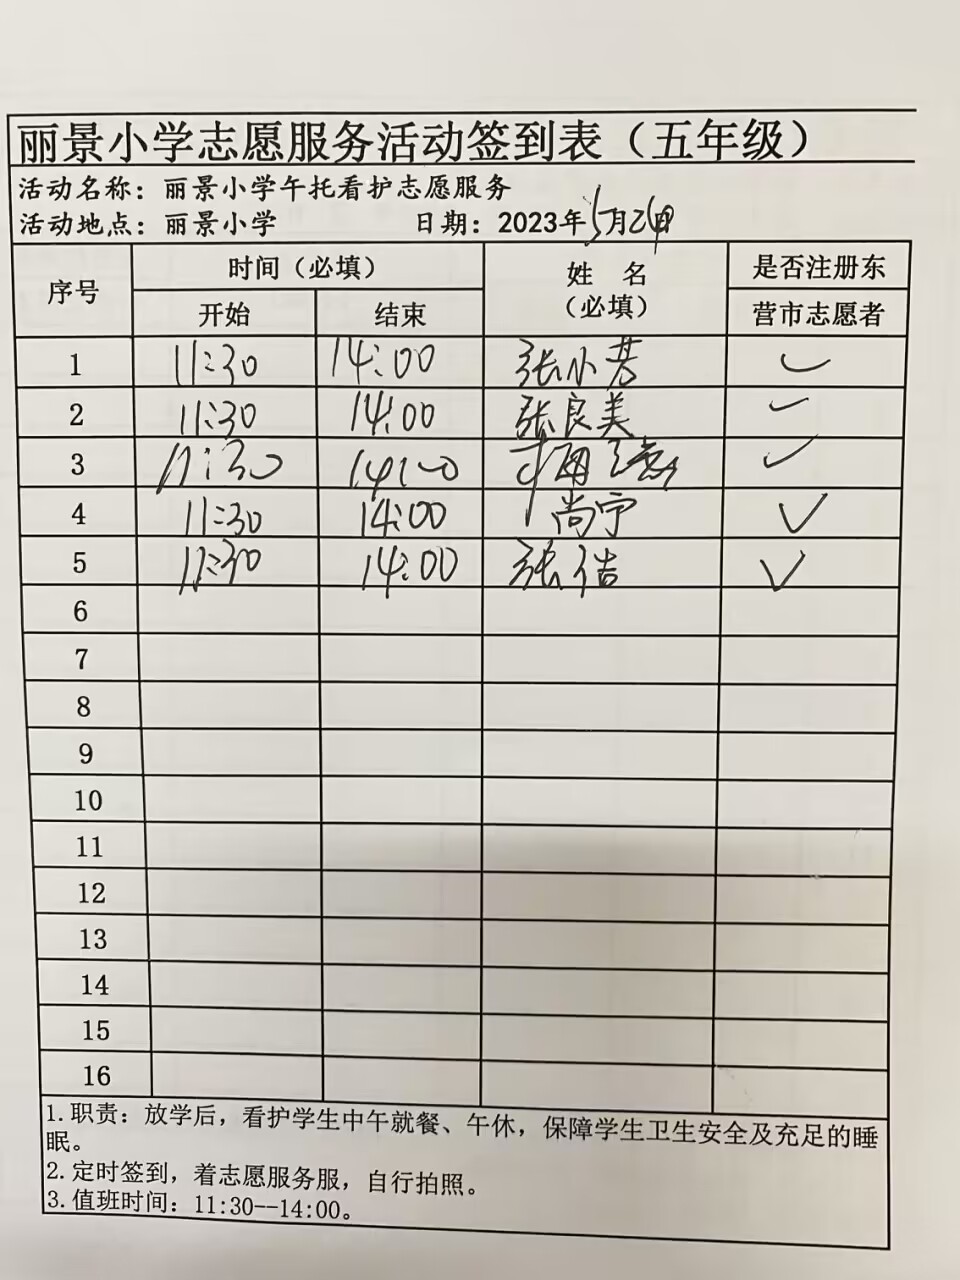 丽景小学志愿服务活动签到表（五年级）
活动名称：丽景小学午托看护志愿服务
活动地点：丽景小学 日期：2023年5月26日
序号 时间（必填） 姓 名（必填） 是否注册东营市志愿者
开始 结束
1 11:30 14:00 张小芳 ✓
2 11:30 14:00 张良美 ✓
3 11:30 14:00 ✓
4 11:30 14:00 尚宁 ✓
5 11:30 14:00 张倩 ✓
6
7
8
9
10
11
12
13
14
15
16
1.职责：放学后，看护学生中午就餐、午休，保障学生卫生安全及充足的睡
眠。
2.定时签到，着志愿服务服，自行拍照。
3.值班时间：11:30--14:00。